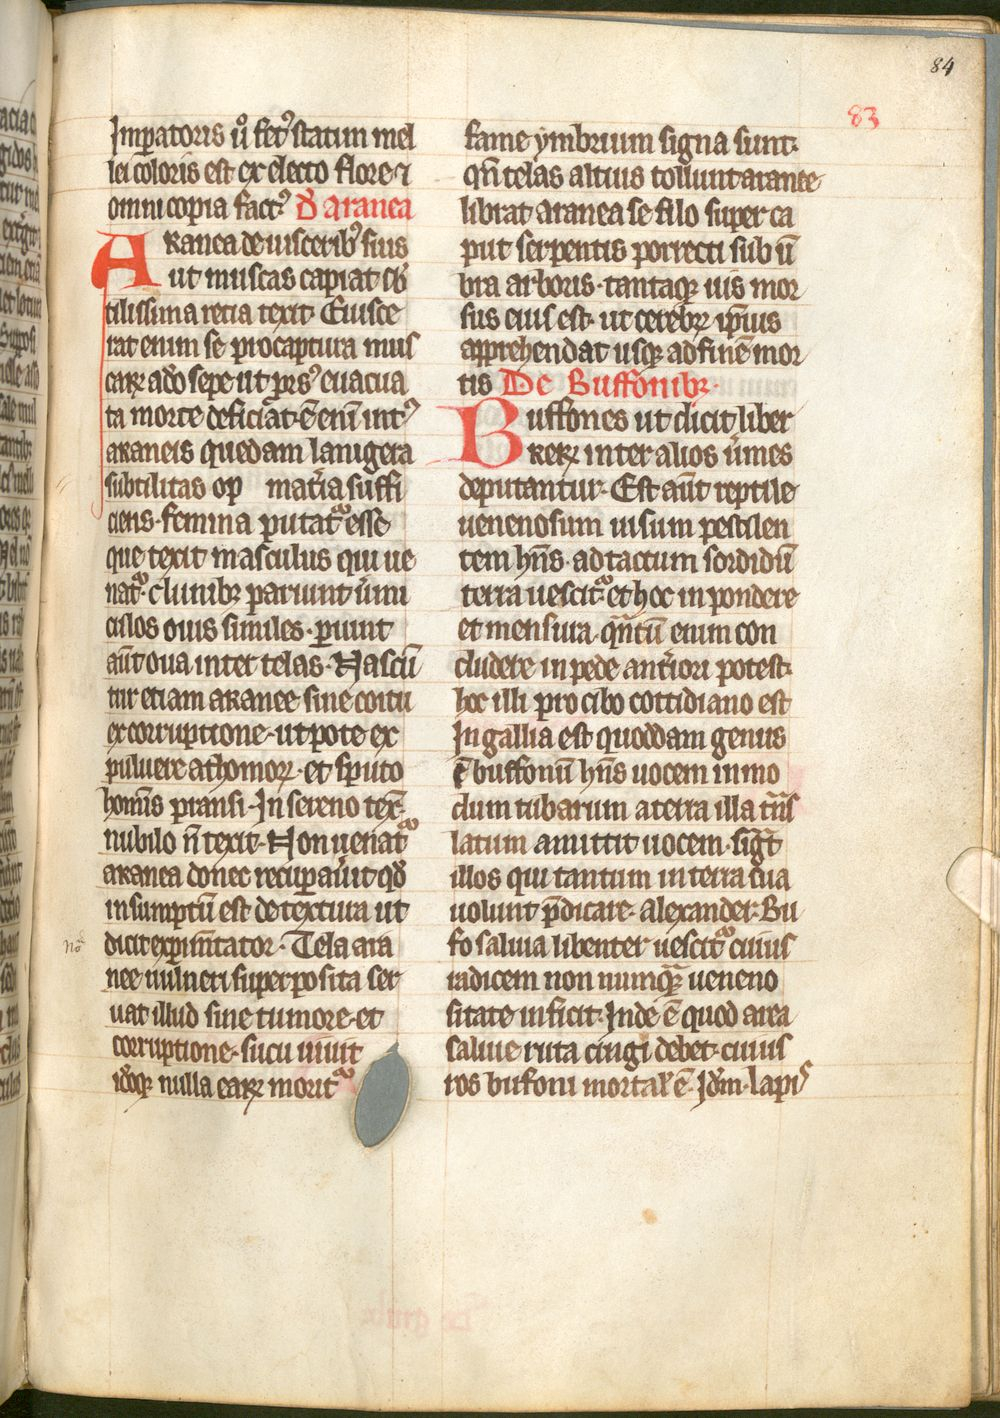 84
83
Imꝑatoris ṽ fetꝰ statim mel
lei coloris est ex electo flore ⁊
omni copia factꝰ D̃ aranea
Aranea de uisceribꝰ suis
ut muscas capiat sb̾
tilissima retia texit· Euisce
rat enim se pro captura mus
caꝝ adõ sepe ut ꝓrsꝰ euacua
ta morte deficiat· ẽ eni int̾ꝰ
araneis quedam lanigera
subtilitas op mat̾ia suffi
ciens· femina putatᷣ esse
que texit masculus qui ue
natᷣ· clunibꝫ pariunt ũmi
culos ouis similes· ꝑiunt
aũt oua inter telas· Nascũ
tur etiam aranee sine coitu
ex corruptione· utpote ex
puluere athomoꝝ· et sputo
hominis pransi· In sereno tex̃·
nubilo ñ texit· Non uenatᷣ
aranea donec recuꝑau̾it qđ
insumptũ est de textura ut
dicit exꝑim̃tator· Tela ara
nee uulneri superposita ser
uat illud sine tumore· et
corruptione· sucu uiuit
iđoqꝫ nulla earꝝ moritᷣ
fame ymbrium signa sunt·
qñ telas altius tollunt aranee
librat aranea se filo super ca
put serpentis porrecti sub ũ
bra arboris· tantaqꝫ uis mor
sus eius est· ut cerebꝝ ip̃ius
apprehendat usqꝫ ad finẽ mor
tis De Buffonibꝫ·
Buffones ut dicit liber
reꝝ inter alios ũmes
deputantur· Est aũt reptile
uenenosum uisum pestilen
tem hñs· ad tactum sordidũ
terra uescitᷣ· et hoc in pondere
et mensura· qñtũ enim con
cludere in pede ant̾iori potest·
hoc illi pro cibo cottidiano est
In gallia est quoddam genus
ẽ buffonũ hñs uocem in mo
dum tubarum a terra illa tñs
latum amittit uocem· sigᷓt
illos qui tantum in terra sua
uolunt p̃dicare· Alexander· Bu
fo saluia libenter uescitᷣ cuius
radicem non numqᷓ ueneno
sitate inficit· Inde ẽ quod area
saluie ruta cingi debet· cuius
ros bufoni mortal̾ ẽ· Iđm· Lapis
No͛